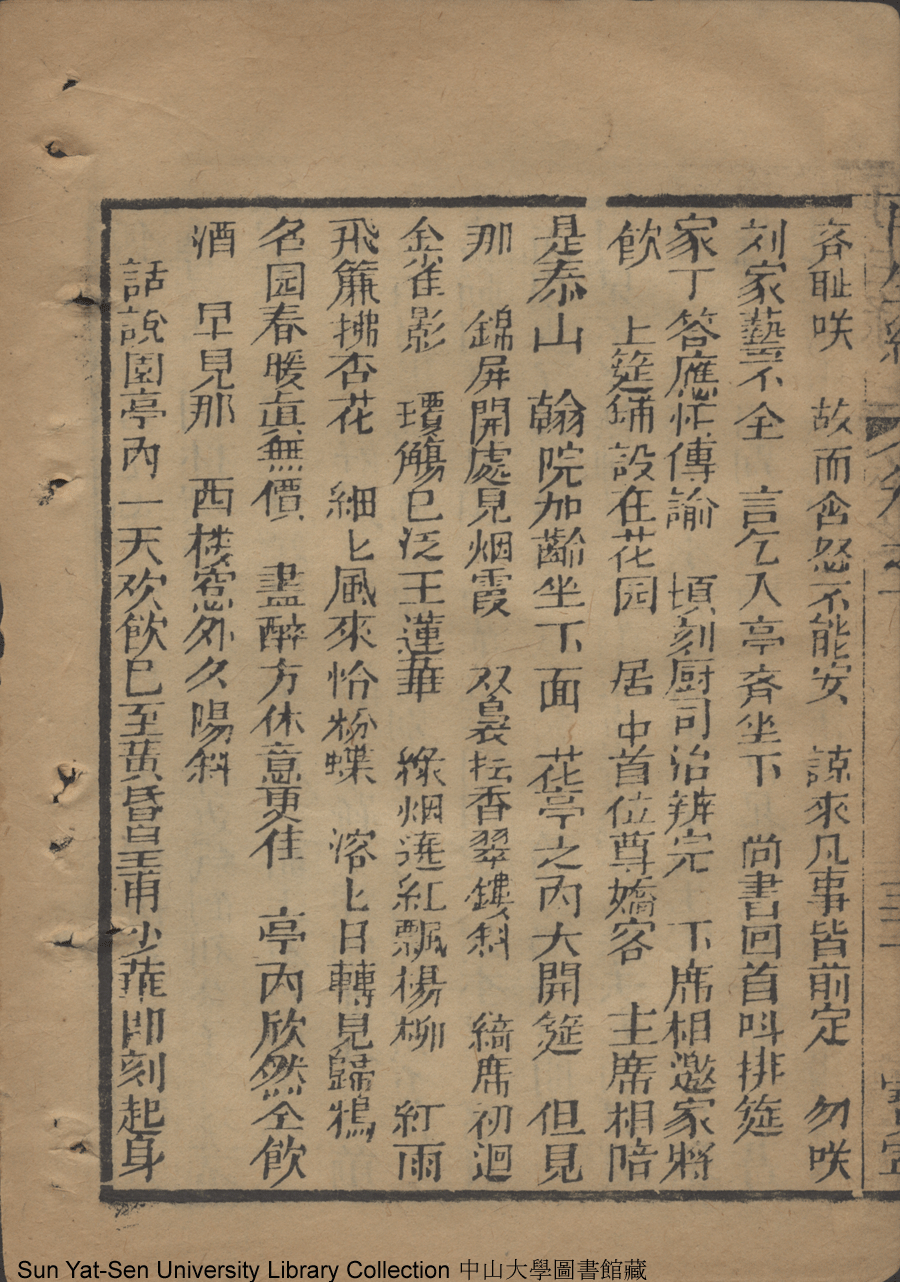 吝耻咲 故而含怒不能安 諒來凡事皆前定 勿咲
刘家藝不全 言乞入亭齐坐下 尚書回首呌排筵
家丁答應忙傳諭 頃刻厨司治辨完 下席相邀家將
飲 上筵铺設在花园 居中首位尊嬌客 主席相陪
是泰山 翰院加齡坐下面 花亭之內大開筵 但見
那 錦屏開處見烟霞 双裊抎香翠鏤斜 綺席初迴
金雀影 瓊觴巳泛王蓮華 緑烟遶紅飄楊柳 紅雨
飛簾拂杏花 細匕風來恰粉蝶 溶匕日轉見歸鴉
名园春暖眞無價 盡醉方休意更佳 亭內欣然仝飲
酒 早見那 西楼窓外久陽斜
話說園亭內一天欢飲巳至黄昏皇甫少華即刻起身
Sun Yat-Sen University Library Collection 中山大學圖書館藏